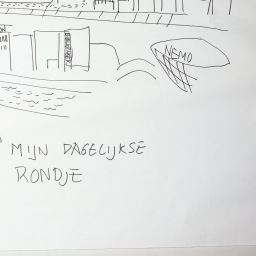 NEMO
MIJN DAGELIJKSE
RONDJE